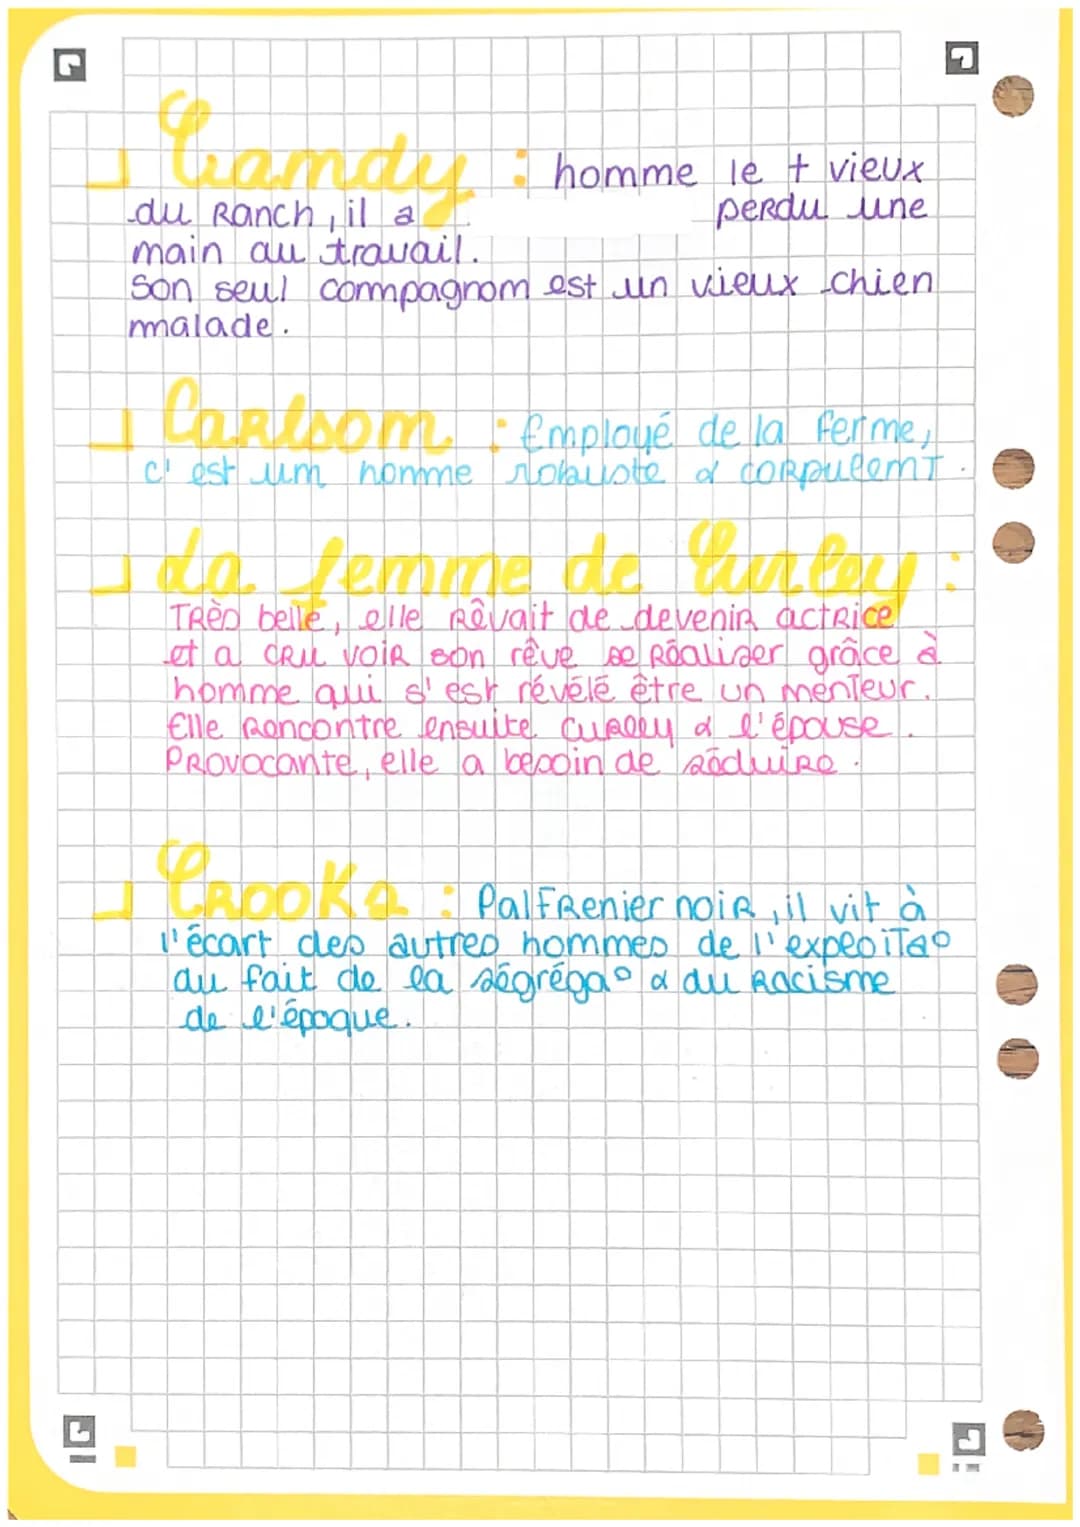 Candy : homme le + vieux
du Ranch, il a perdu une
main au travail.
Son seul compagnon est un vieux chien
malade.
Carlson : Employé de la ferme,
c'est un homme robuste & corpulent.
La femme de Curley :
Très belle, elle rêvait de devenir actrice
et a cru voir son rêve se réaliser grâce à
homme qui s'est révélé être un menteur.
Elle rencontre ensuite Curley & l'épouse.
Provocante, elle a besoin de séduire.
Crooks : Palfrenier noir, il vit à
l'écart des autres hommes de l'expoita°
du fait de la ségréga° & du racisme
de l'époque.